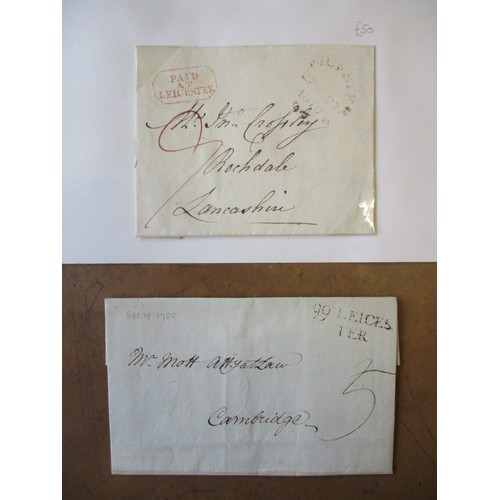 £50
PAID
AT
LEICESTER
Mr. Jno. Crossley
Rochdale
Lancashire
1785
99 LEICES
TER
Mr. Mott Atty at Law
5
Cambridge